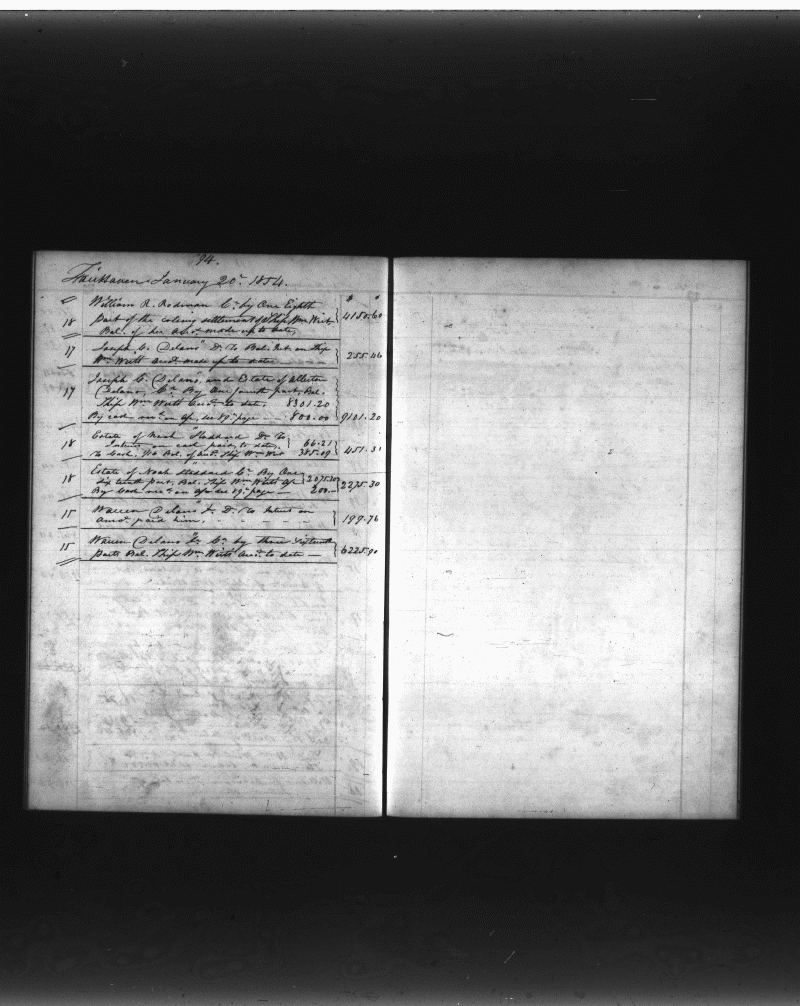 94.
Fairhaven January 20th 1854.
William R. Rodman Cr by One Eighth
18 part of the settlement of Ship Wm Wirt 4150.60
Bal. of her acct made up to date,
17 Joseph C. Delano Dr To Bal. Int. on Ship
Wm Wirtt acct made up to date 255.46
Joseph C. Delano, and Estate of Allerton
17 Delano, Cr By One fourth part, Bal.
Ship Wm Wirtt acct to date. 8301.20
By cash see 89th page 800.00 9101.20
18 Estate of Noah Stoddard Dr To
Interest on cash paid, to date, 66.21
To Cash, Bal. of acct Ship Wm Wirt 385.09 451.31
18 Estate of Noah Stoddard Cr By One
sixteenth part, Bal. Ship Wm Wirtt 2075.30
By Cash see 89th page 200 2275.30
15 Warren Delano Jr Dr To Interest on
acct paid him. 199.76
15 Warren Delano Jr Cr by three sixteenth
parts Bal. Ship Wm Wirtt acct to date 6225.90